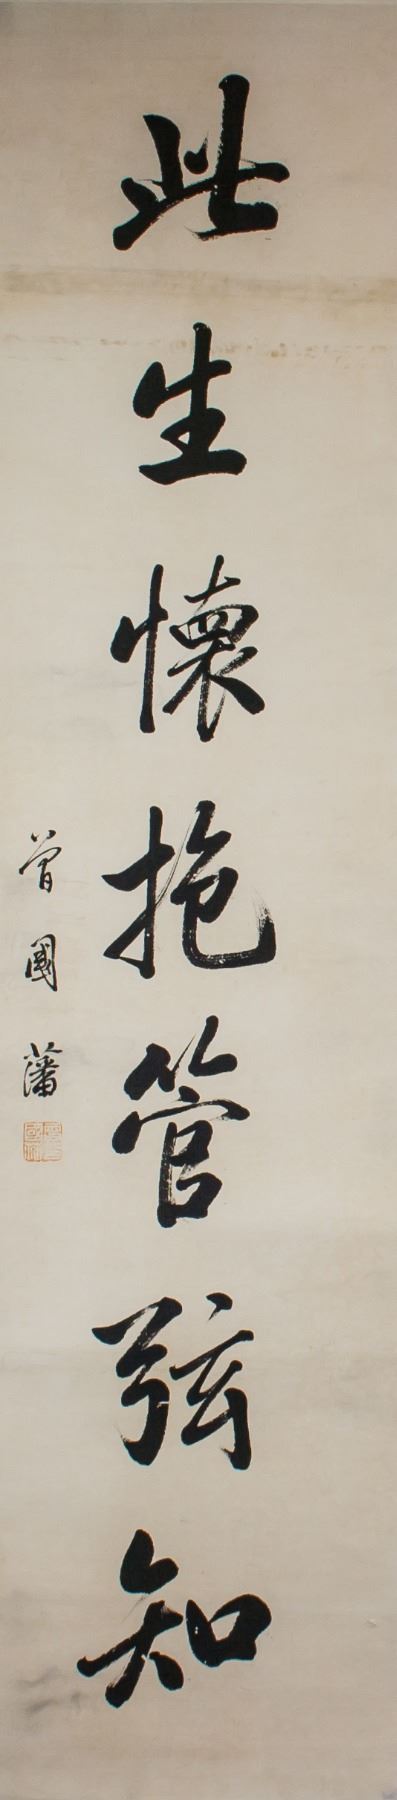 此生懷抱管弦知
曾國藩